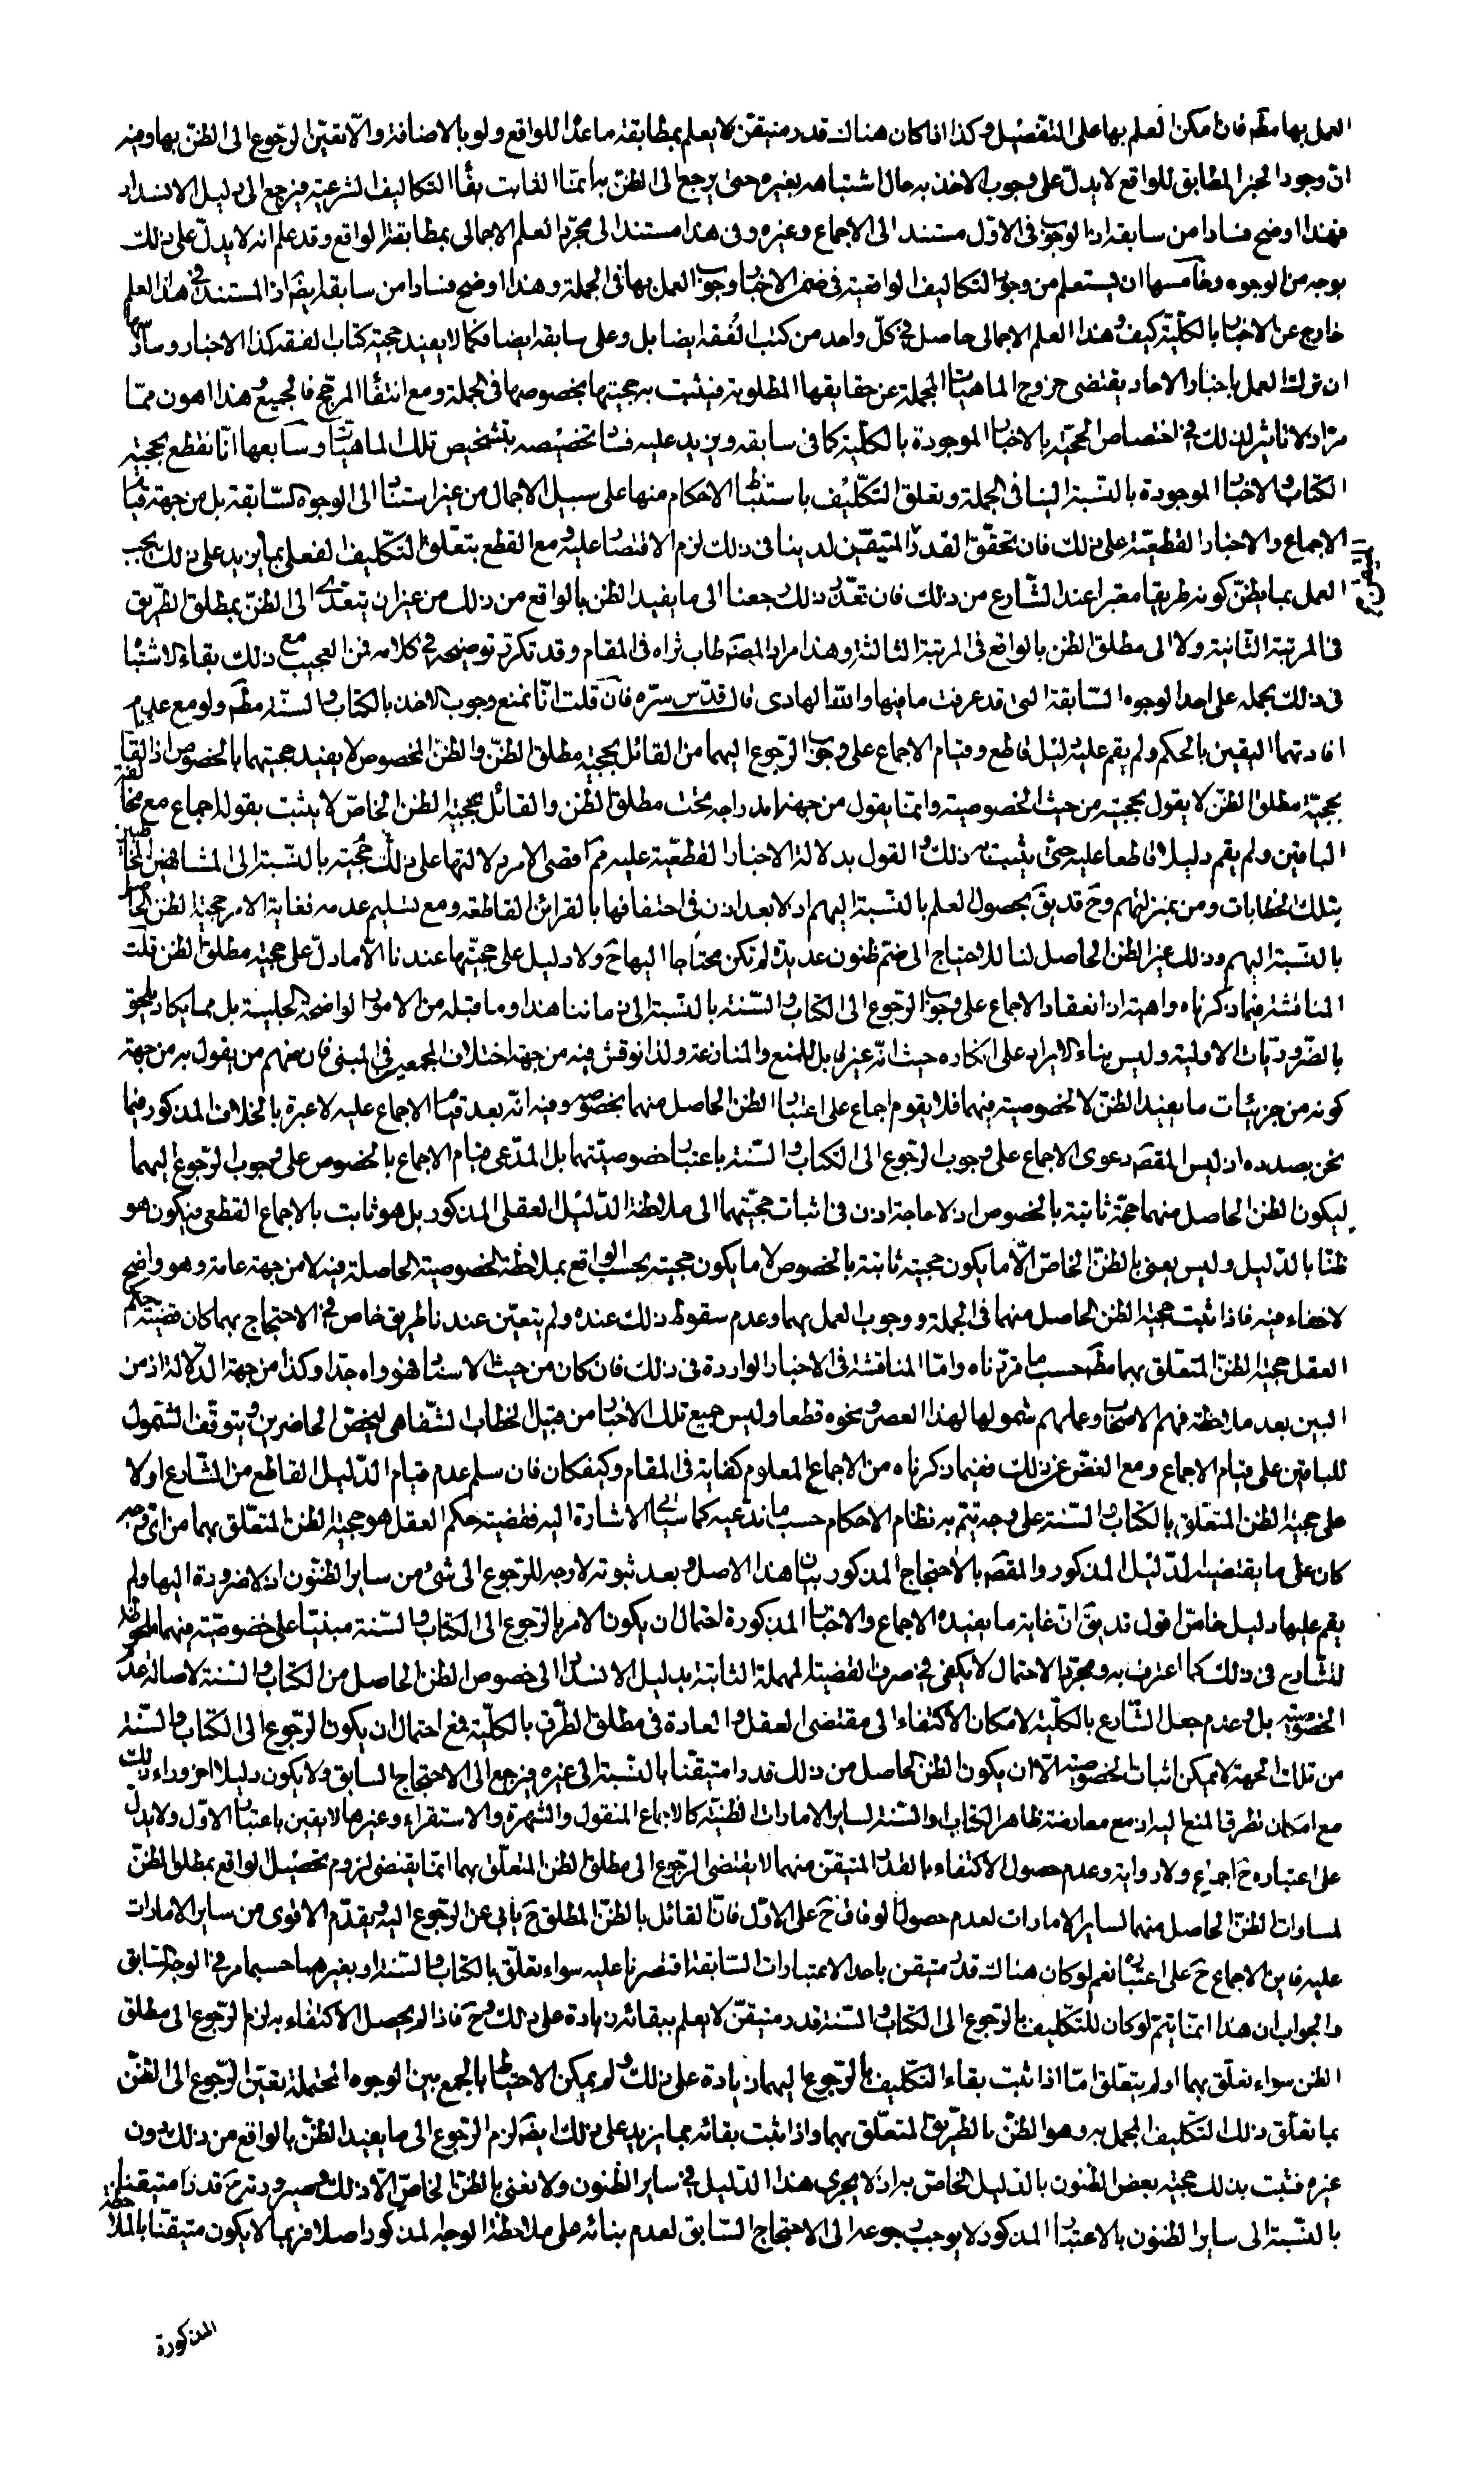 العمل بها مطم فان امكن العلم بها على التفصيل وكذا اذا كان هناك قدر متيقن لا يعلم بمطابقة ما عدا للواقع ولو بالاضافة والا تعين الرجوع الى الظن بها وفيه
ان وجود الخبر المطابق للواقع لا يدل على وجوب الاخذ به حال اشتباهه بغيره حتى يرجع الى الظن به انما الثابت بقاء التكاليف الشرعية فيرجع الى دليل الانسداد
فهذا اوضح فسادا من سابقه اذ الوجوب في الاول مستند الى الاجماع وغيره وفي هذا مستند الى مجرد العلم الاجمالي بمطابقة الواقع وقد علم انه لا يدل على ذلك
بوجه من الوجوه وخامسها ان يستعلم من وجود التكاليف الواقعية في ضمن الاخبار وجوب العمل بها في الجملة وهذا اوضح فسادا من سابقه ايضا اذ المستند في هذا العلم
خارج عن الاخبار بالكلية كيف وهذا العلم الاجمالي حاصل في كل واحد من كتب الفقه ايضا بل وعلى سابقه ايضا فكما لا يفيد حجية كتاب الفقه كذا الاخبار وسادسها
ان ترك العمل باخبار الاحاد يقتضي خروج الماهيات المجملة عن حقايقها المطلوبة فيثبت به حجيتها بخصوصها في الجملة ومع انتفاء المرجح فالجميع وهذا اهون مما
مر اذ لا تاثير لذلك في اختصاص الحجية بالاخبار الموجودة بالكلية كما في سابقه ويزيد عليه فساد تخصيصه بتشخيص تلك الماهيات وسابعها انا نقطع بحجية
الكتاب والاخبار الموجودة بالنسبة الينا في الجملة وتعلق التكليف باستنباط الاحكام منها على سبيل الاجمال من غير استناد الى الوجوه السابقة بل من جهة قيام
الاجماع والاخبار القطعية على ذلك فان تحقق القدر المتيقن لدينا في ذلك لزم الاقتصار عليه ومع القطع بتعلق التكليف الفعلي بما يزيد على ذلك يجب
العمل بما يظن كونه طريقا معتبرا عند الشارع من ذلك فان تعذر ذلك رجعنا الى ما يفيد الظن بالواقع من ذلك من غير ان يتعدى الى الظن بمطلق الطريق
في المرتبة الثانية ولا الى مطلق الظن بالواقع في المرتبة الثالثة وهذا مراد المصنف طاب ثراه في المقام وقد تكرر توضيحه في كلامه فمن العجيب مع ذلك بقاء الاشتباه
في ذلك بحمله على احد الوجوه السابقة التي قد عرفت ما فيها والله الهادي قال قدس سره فان قلت انا نمنع وجوب الاخذ بالكتاب والسنة مطم ولو مع عدم
افادتهما اليقين بالحكم ولم يقم عليه دليل قاطع وقيام الاجماع على وجوب الرجوع اليهما من القائل بحجية مطلق الظن والظن المخصوص لا يفيد حجيتهما بالخصوص اذ القائل
بحجية مطلق الظن لا يقول بحجيته من حيث الخصوصية وانما يقول من جهة اندراجه تحت مطلق الظن والقائل بحجية الظن الخاص لا يثبت بقوله اجماع مع مخالفة
الباقين ولم يقم دليلا قاطعا عليه حتى يثبت به ذلك والقول بدلالة الاخبار القطعية عليه مم اقصى الامر دلالتها على ذلك حجية بالنسبة الى المشافهين المخاطبين
بتلك الخطابات ومن بمنزلتهم وح قد يق بحصول العلم بالنسبة اليهم اذ لا بعد اذن في احتفافها بالقرائن القاطعة ومع تسليم عدمه فغاية الامر حجية الظن الحاصل
بالنسبة اليهم وذلك غير الظن الحاصل لنا للاحتياج الى ضم ظنون عديدة لم تكن محتاجا اليها ح ولا دليل على حجيتها عندنا الا ما دل على حجية مطلق الظن قلت
المناقشة فيما ذكرناه واهية اذ انعقاد الاجماع على وجوب الرجوع الى الكتاب والسنة بالنسبة الى زماننا هذا وما قبله من الامور الواضحة الجلية بل مما يكاد يلحق
بالضروريات الاولية وليس بناء الايراد على انكاره حيث انه غير قابل للمنع والمنازعة ولذا نوقش فيه من جهة اختلاف المجمعين في المبنى فان منهم من يقول به من جهة
كونه من جزئيات ما يفيد الظن لا لخصوصية فيهما فلا يقوم اجماع على اعتبار الظن الحاصل منهما بخصوصه وفيه انه بعد قيام الاجماع عليه لا عبرة بالخلاف المذكور فيما
نحن بصدده اذ ليس المقصم دعوى الاجماع على وجوب الرجوع الى الكتاب والسنة باعتبار خصوصيتهما بل المدعى قيام الاجماع بالخصوص على وجوب الرجوع اليهما
ليكون الظن الحاصل منهما حجة ثابتة بالخصوص اذ لا حاجة اذن في اثبات حجيتهما الى ملاحظة الدليل العقلي المذكور بل هو ثابت بالاجماع القطعي فيكون هو
ظنا بالدليل وليس يعنى بالظن الخاص الا ما يكون حجيته ثابتة بالخصوص لا ما يكون حجيته بحسب الواقع بملاحظة الخصوصية الحاصلة فيه لا من جهة عامة وهو واضح
لا خفاء فيه فاذا ثبت حجية الظن الحاصل منهما في الجملة ووجوب العمل بهما وعدم سقوط ذلك عنده ولم يتعين عندنا طريق خاص في الاحتجاج بهما كان قضية حكم
العقل حجية الظن المتعلق بهما مطم حسب ما قررناه واما المناقشة في الاخبار الواردة في ذلك فان كان من حيث الاسناد فهو واه جدا وكذا من جهة الدلالة اذ من
البين بعد ملاحظة فهم الاصحاب وعملهم شمولها لهذا العصر ونحوه قطعا وليس جميع تلك الاخبار من قبيل الخطاب الشفاهي ليخص الحاضرين ويتوقف الشمول
للباقين على قيام الاجماع ومع الغض عن ذلك ففيما ذكرناه من الاجماع المعلوم كفاية في المقام وكيفكان فان سلم عدم قيام الدليل القاطع من الشارع اولا
على حجية الظن المتعلق بالكتاب والسنة على وجه يتم به نظام الاحكام حسب ما ندعيه كما سيأتي الاشارة اليه فقضية حكم العقل هو حجية الظن المتعلق بهما من اي وجه
كان على ما يقتضيه الدليل المذكور والمقصم بالاحتجاج المذكور بيان هذا الاصل وبعد ثبوته لا وجه للرجوع الى شيء من ساير الظنون اذ لا ضرورة اليها ولم
يقم عليها دليل خاص اقول قد يق ان غاية ما يفيده الاجماع والاخبار المذكورة احتمال ان يكون الامر بالرجوع الى الكتاب والسنة مبنيا على خصوصية فيهما ملحوظة
للشارع في ذلك كما اعترف به ومجرد الاحتمال لا يكفي في صرف القضية المهملة الثابتة بدليل الانسداد الى خصوص الظن الحاصل من الكتاب والسنة لاصالة عدم
الخصوصية بل وعدم جعل الشارع بالكلية لامكان الاكتفاء الى مقتضى العقل والعادة في مطلق الطرق بالكلية فمع احتمال ان يكون الرجوع الى الكتاب والسنة
من تلك الجهة لا يمكن اثبات الخصوصية الا ان يكون الظن الحاصل من ذلك قدرا متيقنا بالنسبة الى غيره فيرجع الى الاحتجاج السابق ولا يكون دليلا اخر وراء ذلك
مع امكان تطرق المنع اليه اذ مع معارضة ظاهر الكتاب والسنة لساير الامارات الظنية كالاجماع المنقول والشهرة والاستقراء وغيرها لا يقين باعتبار الاول ولا يدل
على اعتباره ح اجماع ولا رواية وعدم حصول الاكتفاء بالقدر المتيقن منهما لا يقتضي الرجوع الى مطلق الظن المتعلق بهما انما يقتضي لزوم تحصيل الواقع بمطلق الظن
لمساوات الظن الحاصل منهما لساير الامارات لعدم حصول الوفاق ح على الاول فان القائل بالظن المطلق ح يابى عن الرجوع اليه ويقدم الاقوى من ساير الامارات
عليه فاين الاجماع ح على اعتباره نعم لو كان هناك قدر متيقن باحد الاعتبارات السابقة اقتصرنا عليه سواء تعلق بالكتاب والسنة او بغيرهما حسبما مر في الوجه السابق
والجواب ان هذا انما يتم لو كان للتكليف بالرجوع الى الكتاب والسنة قدر متيقن لا يعلم ببقائه زيادة على ذلك وح فاذا لم يحصل الاكتفاء به لزم الرجوع الى مطلق
الظن سواء تعلق بهما او لم يتعلق اما اذا ثبت بقاء التكليف بالرجوع اليهما زيادة على ذلك ولم يمكن الاحتياط بالجمع بين الوجوه المحتملة تعين الرجوع الى الظن
بما تعلق ذلك التكليف المجمل به وهو الظن بالطريق المتعلق بهما واذا ثبت بقائه بما يزيد على ذلك ايضم لزم الرجوع الى ما يفيد الظن بالواقع من ذلك دون
غيره فثبت بذلك حجية بعض الظنون بالدليل الخاص به اذ لا يجري هذا الدليل في ساير الظنون ولا نعني بالظن الخاص الا ذلك وصيرورته ح قدرا متيقنا
بالنسبة الى ساير الظنون بالاعتبار المذكور لا يوجب رجوعه الى الاحتجاج السابق لعدم بنائه على ملاحظة الوجه المذكور اصلا فربما لا يكون متيقنا بالملاحظة
المذكورة